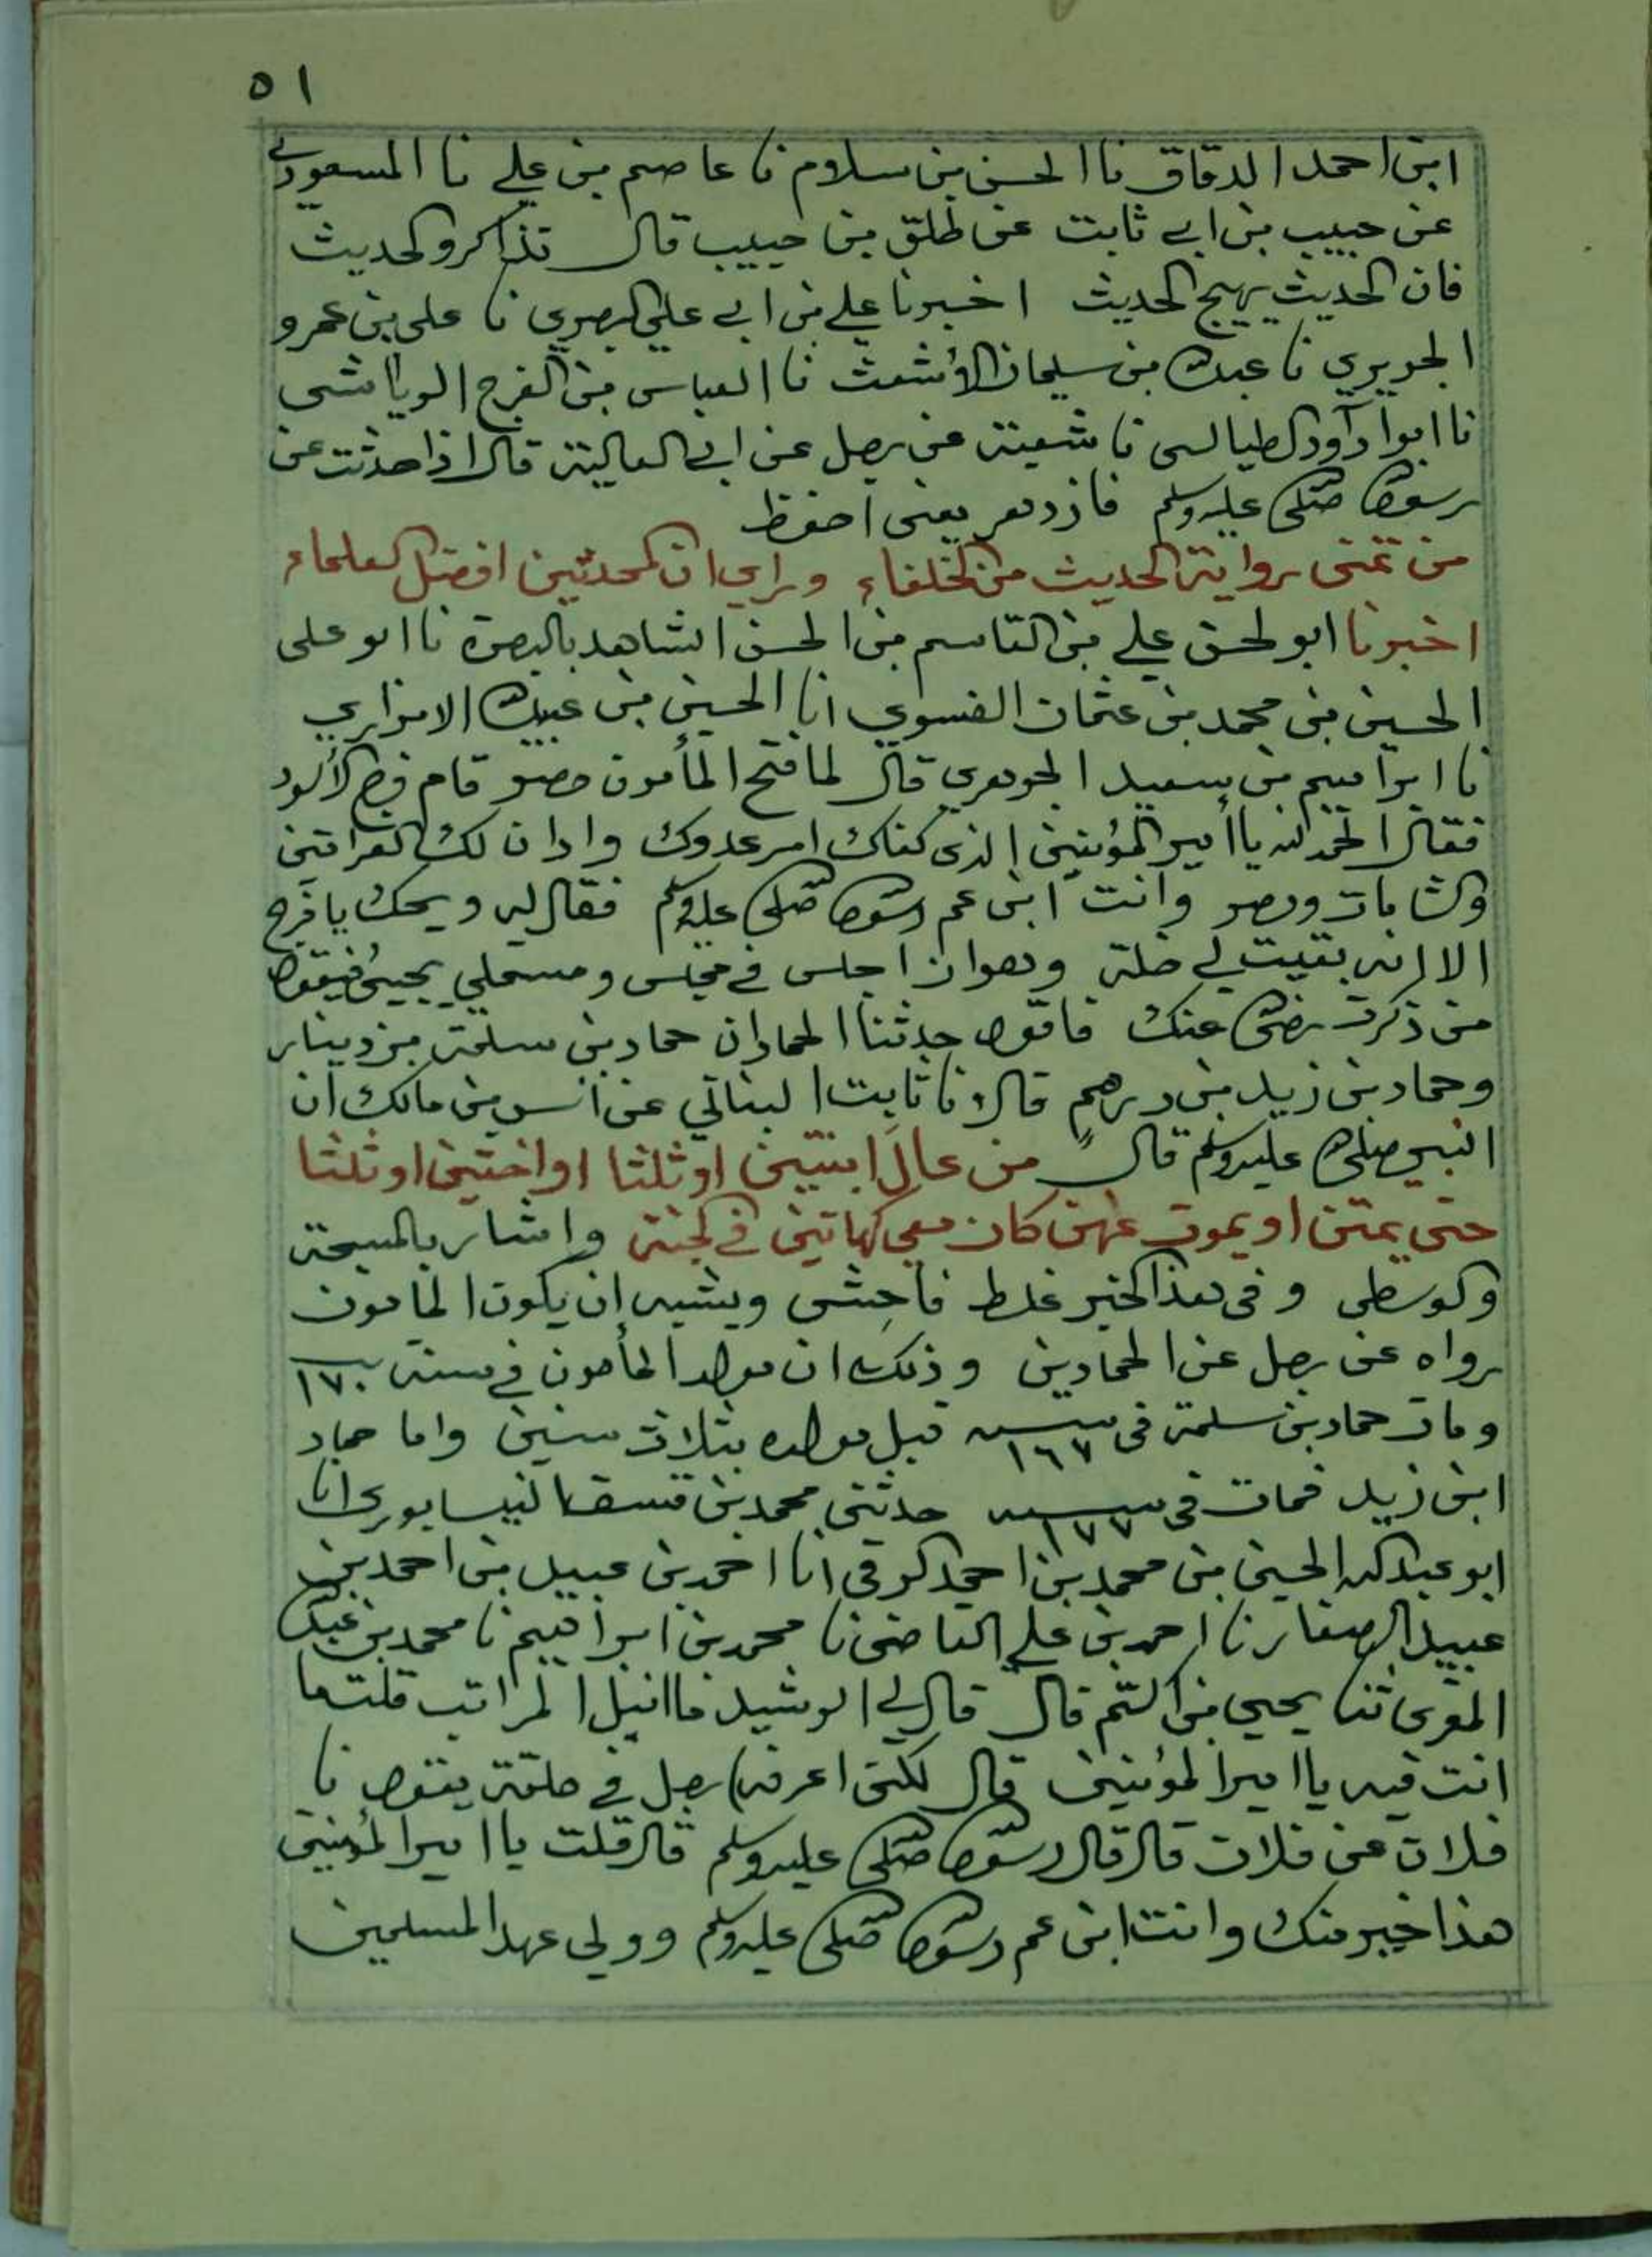 ٥١
ابن احمد الدقاق نا الحسن بن سلام نا عاصم بن علي نا المسعودي
عن حبيب بن ابي ثابت عن طلق بن حبيب قال تذاكروا الحديث
فان الحديث يهيج الحديث اخبرنا علي بن ابي علي البصري نا علي بن عمرو
الجريري نا عبدالله بن سليمان الأشعث نا العباس بن الفرج الرياشي
نا ابوا داود الطيالسي نا شعبة عن رجل عن ابي العالية قال اذا حدثت عن
رسول الله صلى الله عليه وسلم فازدهر يعني احفظ
من تمنى رواية الحديث من الخلفاء وراي ان المحدثين افضل العلماء
اخبرنا ابو الحسن علي بن القاسم بن الحسن الشاهد بالبصرة نا ابو علي
الحسين بن محمد بن عثمان الفسوي انا الحسين بن عبيدالله الابزاري
نا ابراهيم بن سعيد الجوهري قال لما فتح المأمون مصر قام فرج الأسود
فقال الحمد لله يا أمير المؤمنين الذي كفاك امر عدوك وادان لك العراقين
والشامات ومصر وانت ابن عم رسول الله صلى الله عليه وسلم فقال له ويحك يا فرج
الا انه بقيت لي خلة وهو ان اجلس في مجلس ومستملي يجيئ فيقول
من ذكرت رضي الله عنك فاقول حدثنا الحمادان حماد بن سلمة بن دينار
وحماد بن زيد بن درهم قالا نا ثابت البناني عن أنس بن مالك ان
النبي صلى الله عليه وسلم قال من عال ابنتين او ثلثا او اختين او ثلثا
حتى يمتن او يموت عنهن كان معي كهاتين في الجنة واشار بالمسبحة
والوسطى وفي هذا الخبر غلط فاحش ويشبه ان يكون المامون
رواه عن رجل عن الحمادين وذلك ان مولد المأمون في سنة ١٧٠
ومات حماد بن سلمة في سنة ١٦٧ قبل مولده بثلاث سنين واما حماد
ابن زيد فمات في سنة ١٧٧ حدثني محمد بن يوسف النيسابوري انا
ابو عبد الله الحسين بن محمد بن احمد الرقي انا احمد بن عبيد بن احمد بن
عبيد الصفار نا احمد بن علي القاضي نا محمد بن ابراهيم نا محمد بن عبدالله
المقري ثنا يحيى بن اكثم قال قال لي الرشيد ما انبل المراتب قلت ما
انت فيه يا امير المؤمنين قال لكني اعرفه رجل في حلقة يقول نا
فلان عن فلان قال قال رسول الله صلى الله عليه وسلم قال قلت يا امير المؤمنين
هذا خير منك وانت ابن عم رسول الله صلى الله عليه وسلم وولي عهد المسلمين